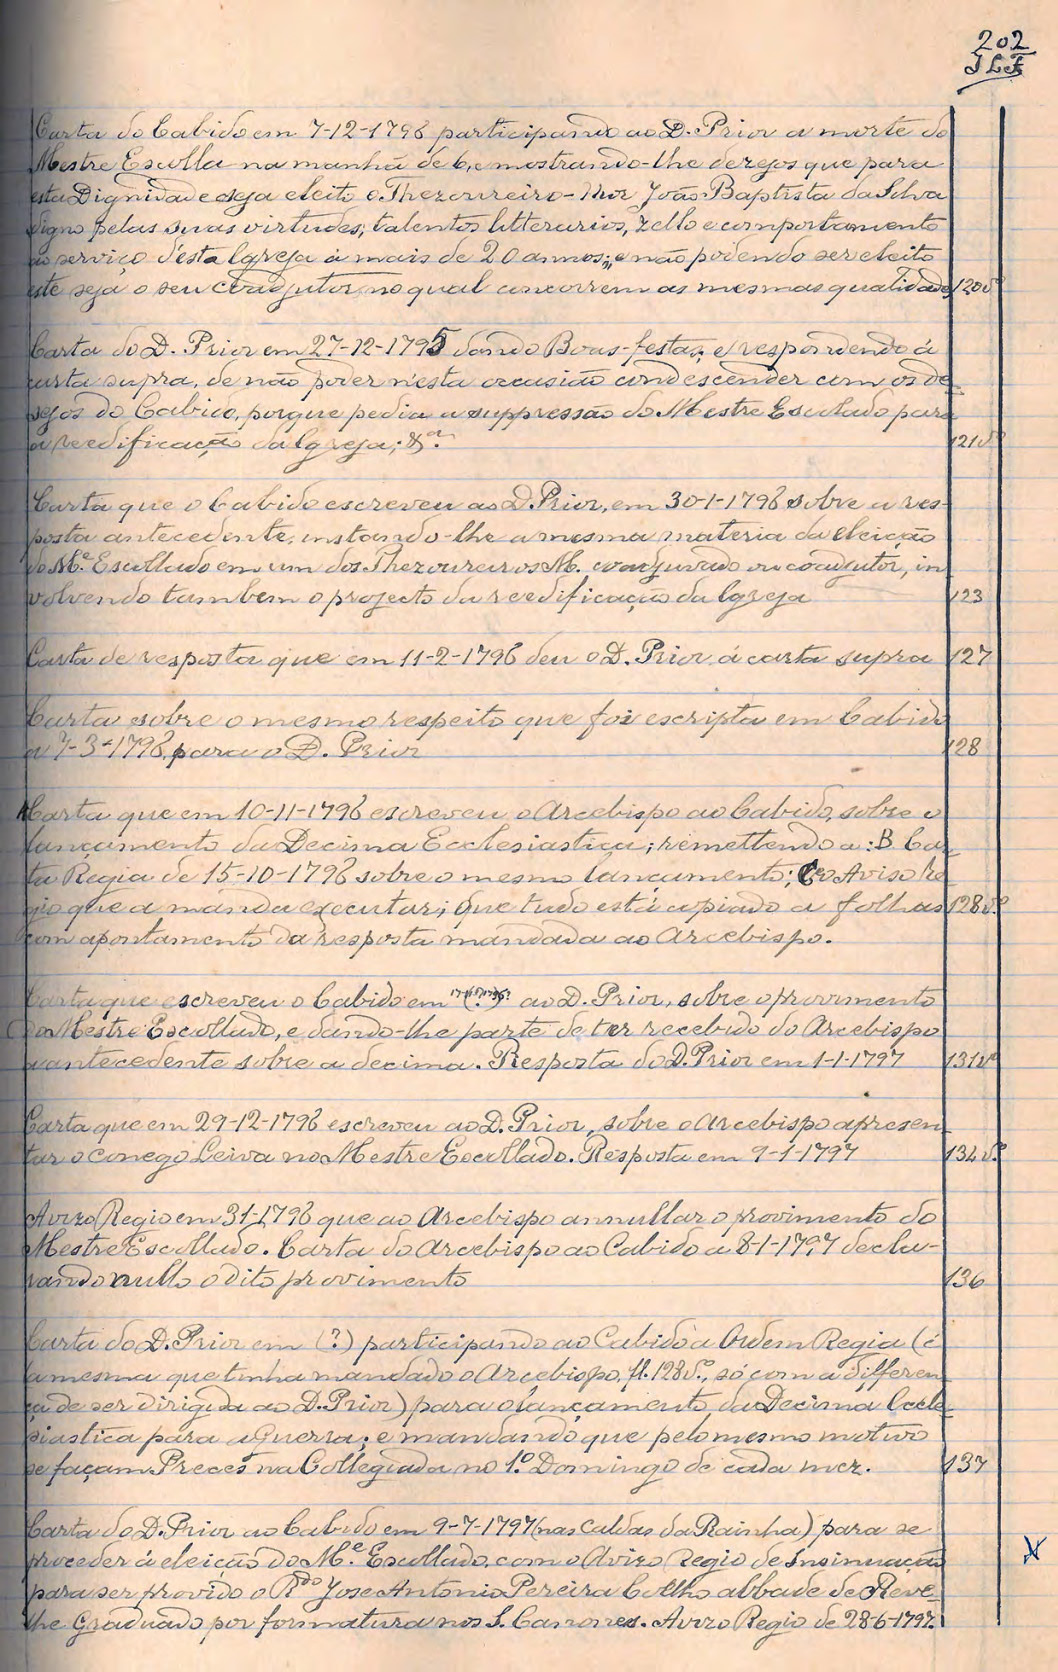 202
Carta do Cabido em 7-12-1796 participando ao D. Prior a morte do
Mestre Escolla na manhã de 6, e mostrando-lhe dezejos que para
esta Dignidade seja eleito o Thezoureiro-Mor João Baptista da Silva
digno pelas suas virtudes, talentos litterarios, zello e comportamento
ao serviço d'esta Igreja á mais de 20 annos; e não podendo ser eleito
este seja o seu coadjutor, no qual concorrem as mesmas qualidades 120v.
Carta do D. Prior em 27-12-1795 dando Boas-festas, e respondendo á
carta supra, de não poder n'esta occasião condescender com os de-
sejos do Cabido, porque pedia a suppressão do Mestre Escolado para
a reedificação da Igreja; &ª. 121v.
Carta que o Cabido escreveu ao D. Prior, em 30-1-1796 sobre a res-
posta antecedente, instando-lhe a mesma materia da eleição
do Me. Escollado em um dos Thezoureiros M. coadjuvado ou coadjutor, in
volvendo tambem o projecto da reedificação da Igreja 123
Carta de resposta que em 11-2-1796 deu o D. Prior á carta supra 127
Carta sobre o mesmo respeito que foi escripta em Cabido
a 7-3-1796 para o D. Prior 128
Carta que em 10-11-1796 escreveu o Arcebispo ao Cabido, sobre o
lançamento da Decima Ecclesiastica; remettendo a: B Car-
ta Regia de 15-10-1796 sobre o mesmo lançamento; e o Aviso Re
gio que a manda executar; que tudo está copiado a folhas 128v.
com apontamento da resposta mandada ao Arcebispo.
Carta que escreveu o Cabido em (?) ao D. Prior, sobre o provimento
do Mestre Escollado, e dando-lhe parte de ter recebido do Arcebispo
a antecedente sobre a decima. Resposta do D. Prior em 1-1-1797 131v
Carta que em 29-12-1796 escreveu ao D. Prior, sobre o Arcebispo apresen
tar o conego Leiva no Mestre Escollado. Resposta em 9-1-1797 134v.
Avizo Regio em 31-1796 que ao Arcebispo annullar o provimento do
Mestre Escollado. Carta do Arcebispo ao Cabido a 8-1-1797 decla-
rando nullo o dito provimento 136
Carta do D. Prior em (?) participando ao Cabido a Ordem Regia (é
a mesma que tinha mandado o Arcebispo, fl. 128v., só com a differen
ça de ser dirigida ao D. Prior) para o lançamento da Decima Eccle-
siastica para a Guerra; e mandando que pelo mesmo motivo
se façam Preces na Collegiada no 1.º Domingo de cada mez. 137
Carta do D. Prior ao Cabido em 9-7-1797 (nas Caldas da Rainha) para se
proceder á eleição do Me. Escollado, com o Avizo Regio de Insinuação
para ser provido o Rdo Jose Antonio Pereira Coelho abbade de Reve-
lhe Graduado por formatura nos S. Canones. Avizo Regio de 28-6-1797.